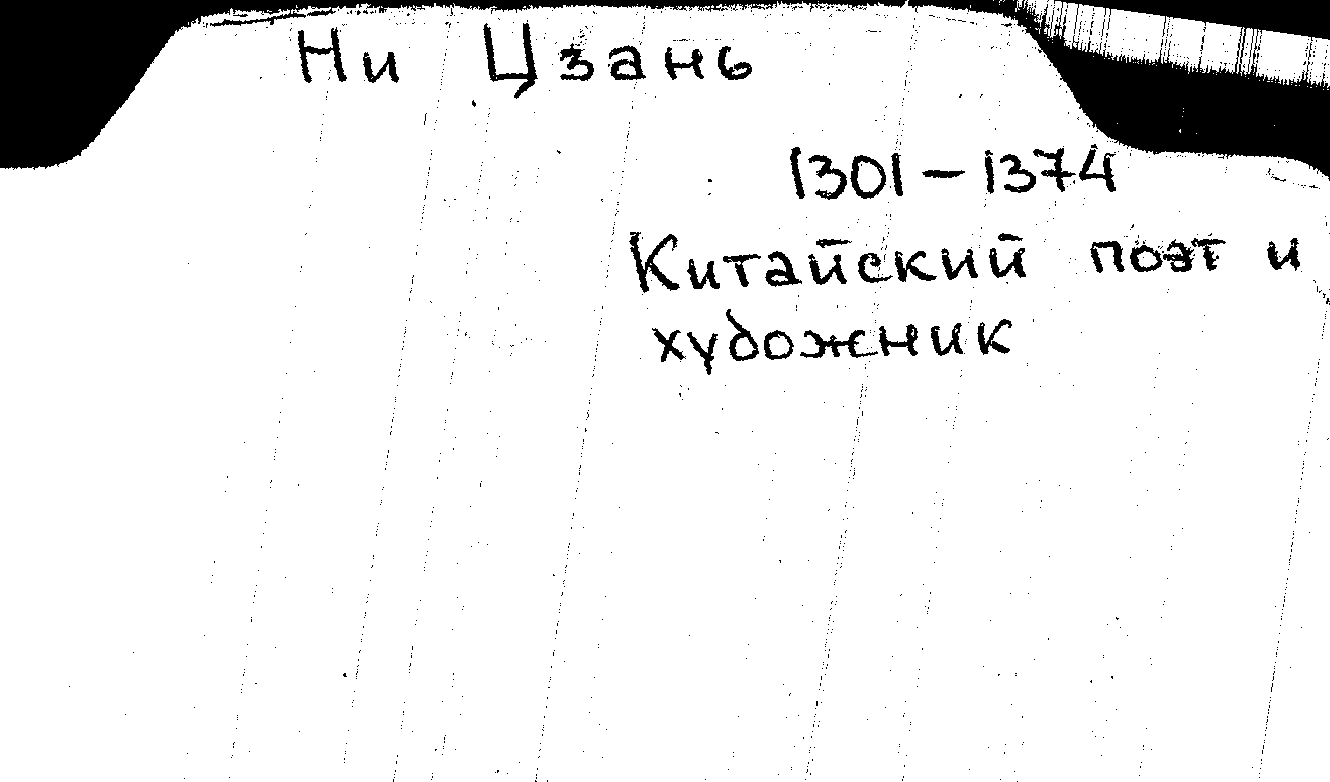 Ни Цзань
1301 – 1374
Китайский поэт и
художник